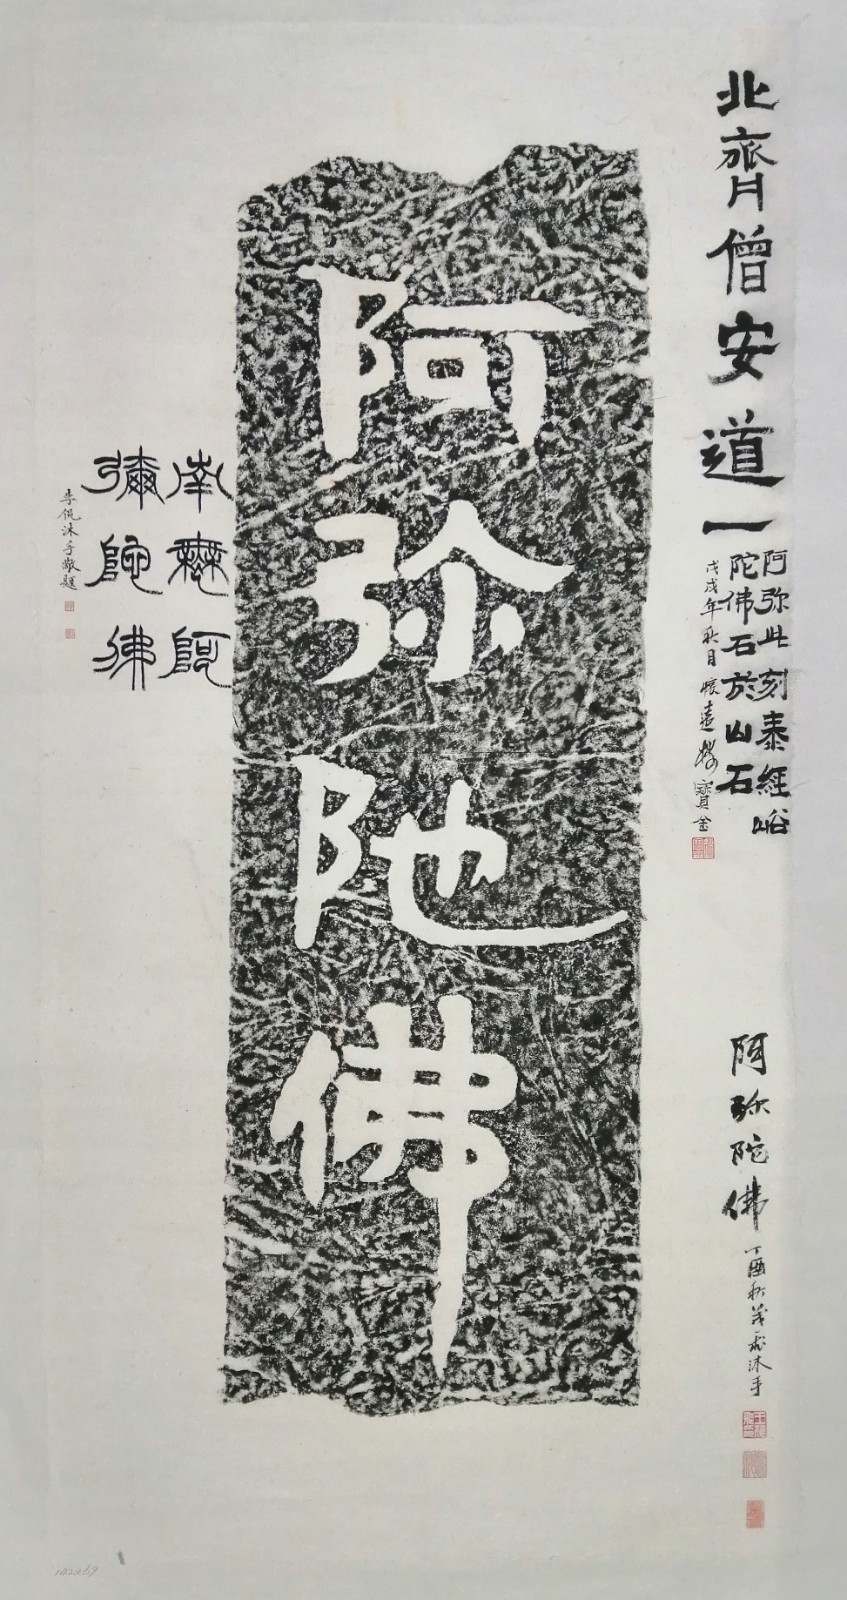 北齊僧安道一
阿弥此刻泰經峪
陀佛石於山石
戊戌年秋月懷遠楼寶金
阿弥陀佛
丁酉秋
沐手
阿弥陁佛
南無阿
彌陀佛
李侃沐手敬題
142x69